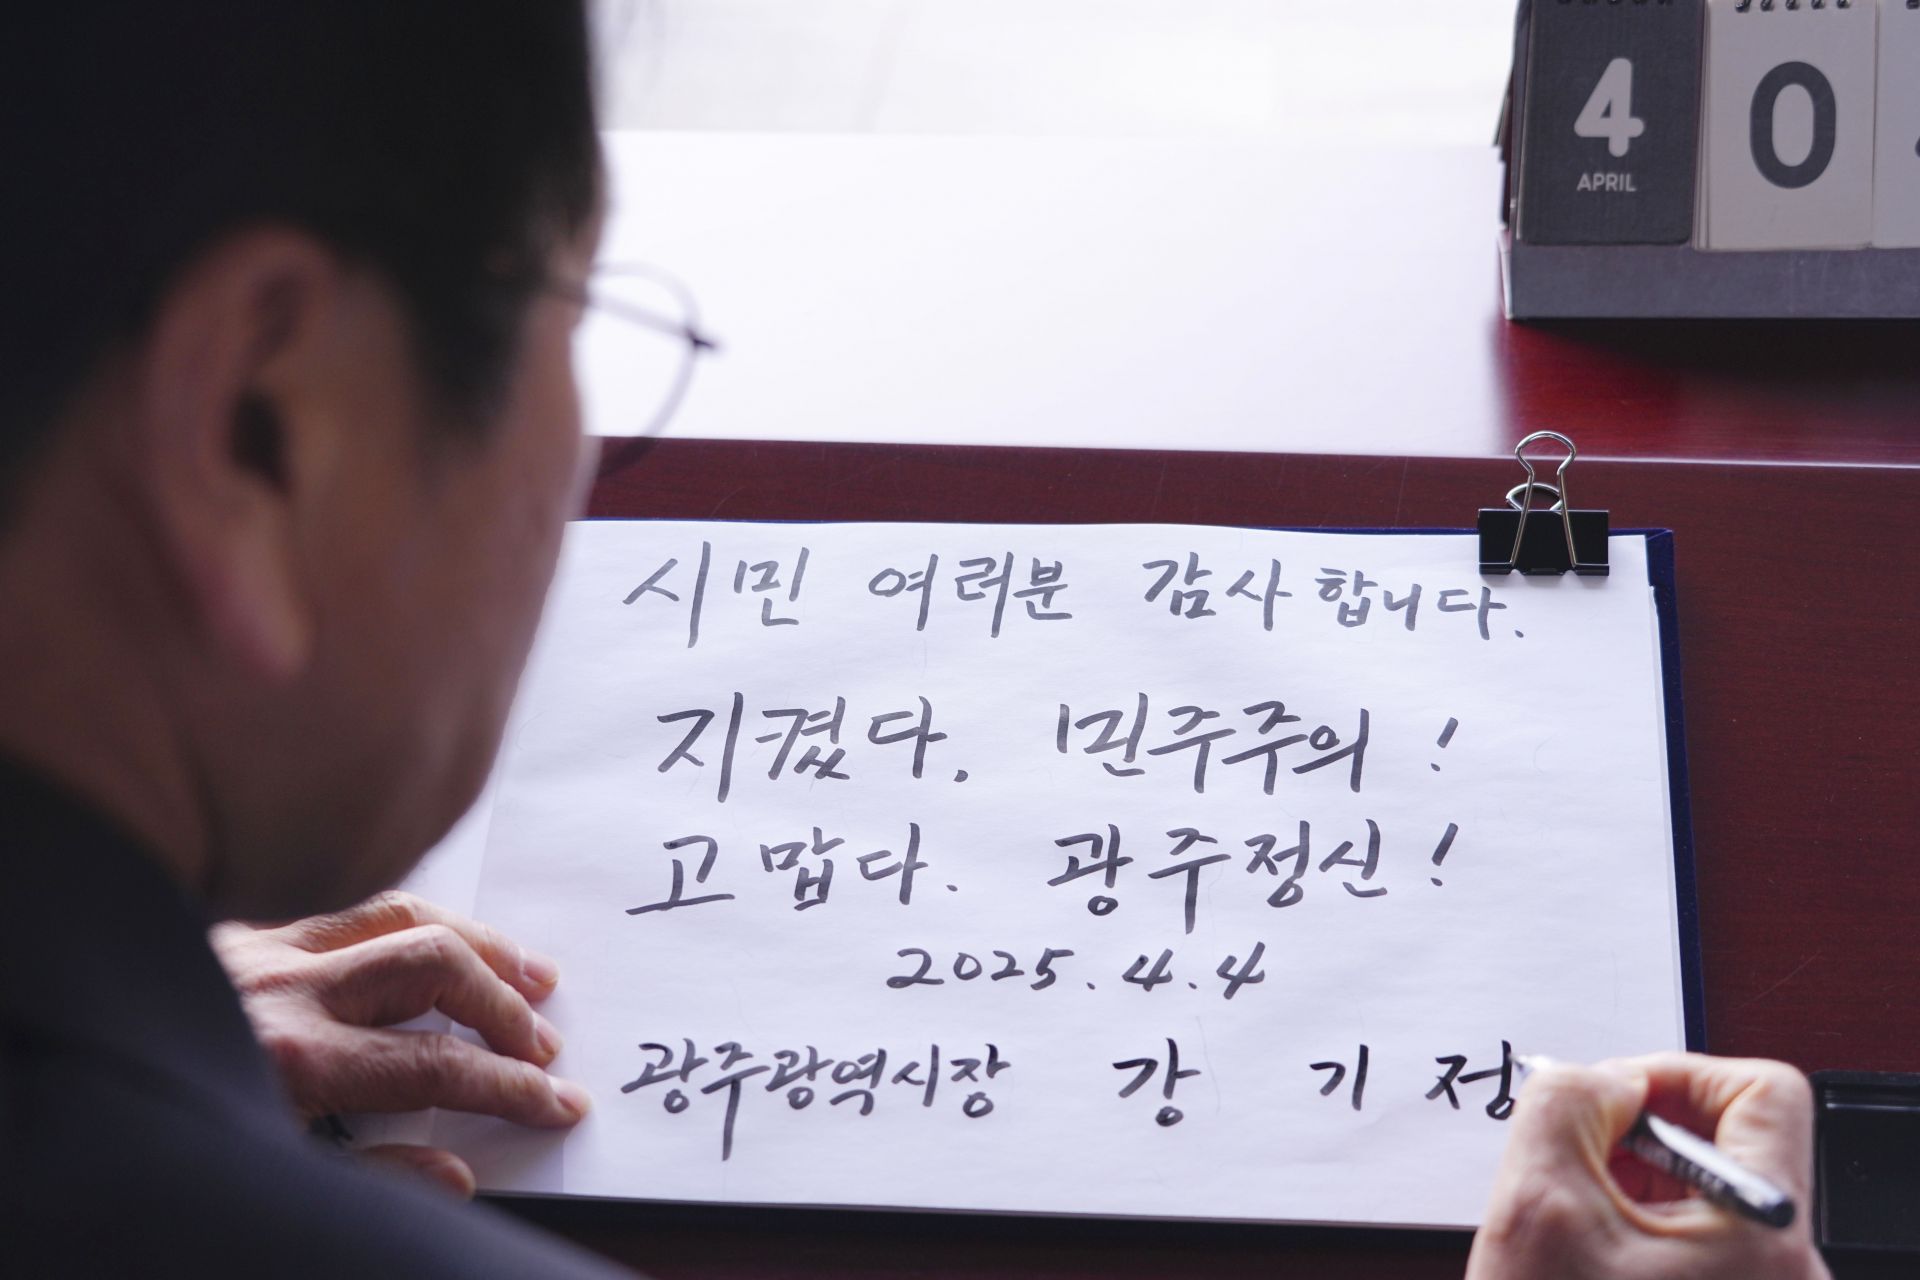 4
APRIL
0
시민 여러분 감사합니다.
지켰다. 민주주의!
고맙다. 광주정신!
2025.4.4
광주광역시장 강 기 정